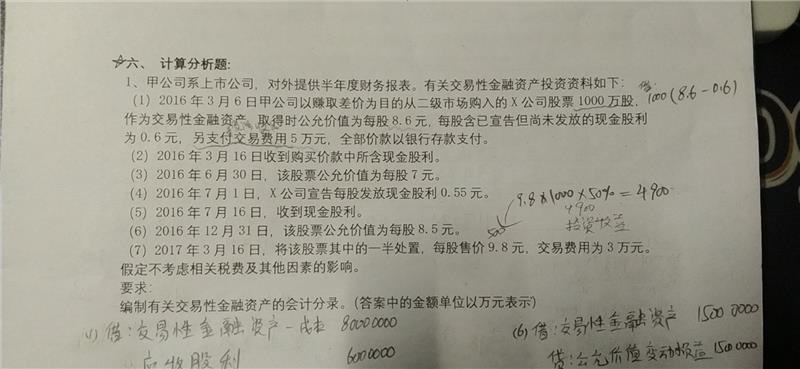 ☆六、计算分析题:
1、甲公司系上市公司，对外提供半年度财务报表。有关交易性金融资产投资资料如下：
借:
1000(8.6-0.6)
（1）2016 年 3 月 6 日甲公司以赚取差价为目的从二级市场购入的 X 公司股票 1000 万股，
作为交易性金融资产，取得时公允价值为每股 8.6 元，每股含已宣告但尚未发放的现金股利
为 0.6 元，另支付交易费用 5 万元，全部价款以银行存款支付。
（2）2016 年 3 月 16 日收到购买价款中所含现金股利。
（3）2016 年 6 月 30 日，该股票公允价值为每股 7 元。
（4）2016 年 7 月 1 日，X 公司宣告每股发放现金股利 0.55 元。
9.8×1000×50%=4900
（5）2016 年 7 月 16 日，收到现金股利。
4900
投资收益
（6）2016 年 12 月 31 日，该股票公允价值为每股 8.5 元。
（7）2017 年 3 月 16 日，将该股票其中的一半处置，每股售价 9.8 元，交易费用为 3 万元。
假定不考虑相关税费及其他因素的影响。
要求：
编制有关交易性金融资产的会计分录。（答案中的金额单位以万元表示）
(1) 借:交易性金融资产-成本 80000000
应收股利 6000000
(6) 借:交易性金融资产 15000000
贷:公允价值变动损益 15000000